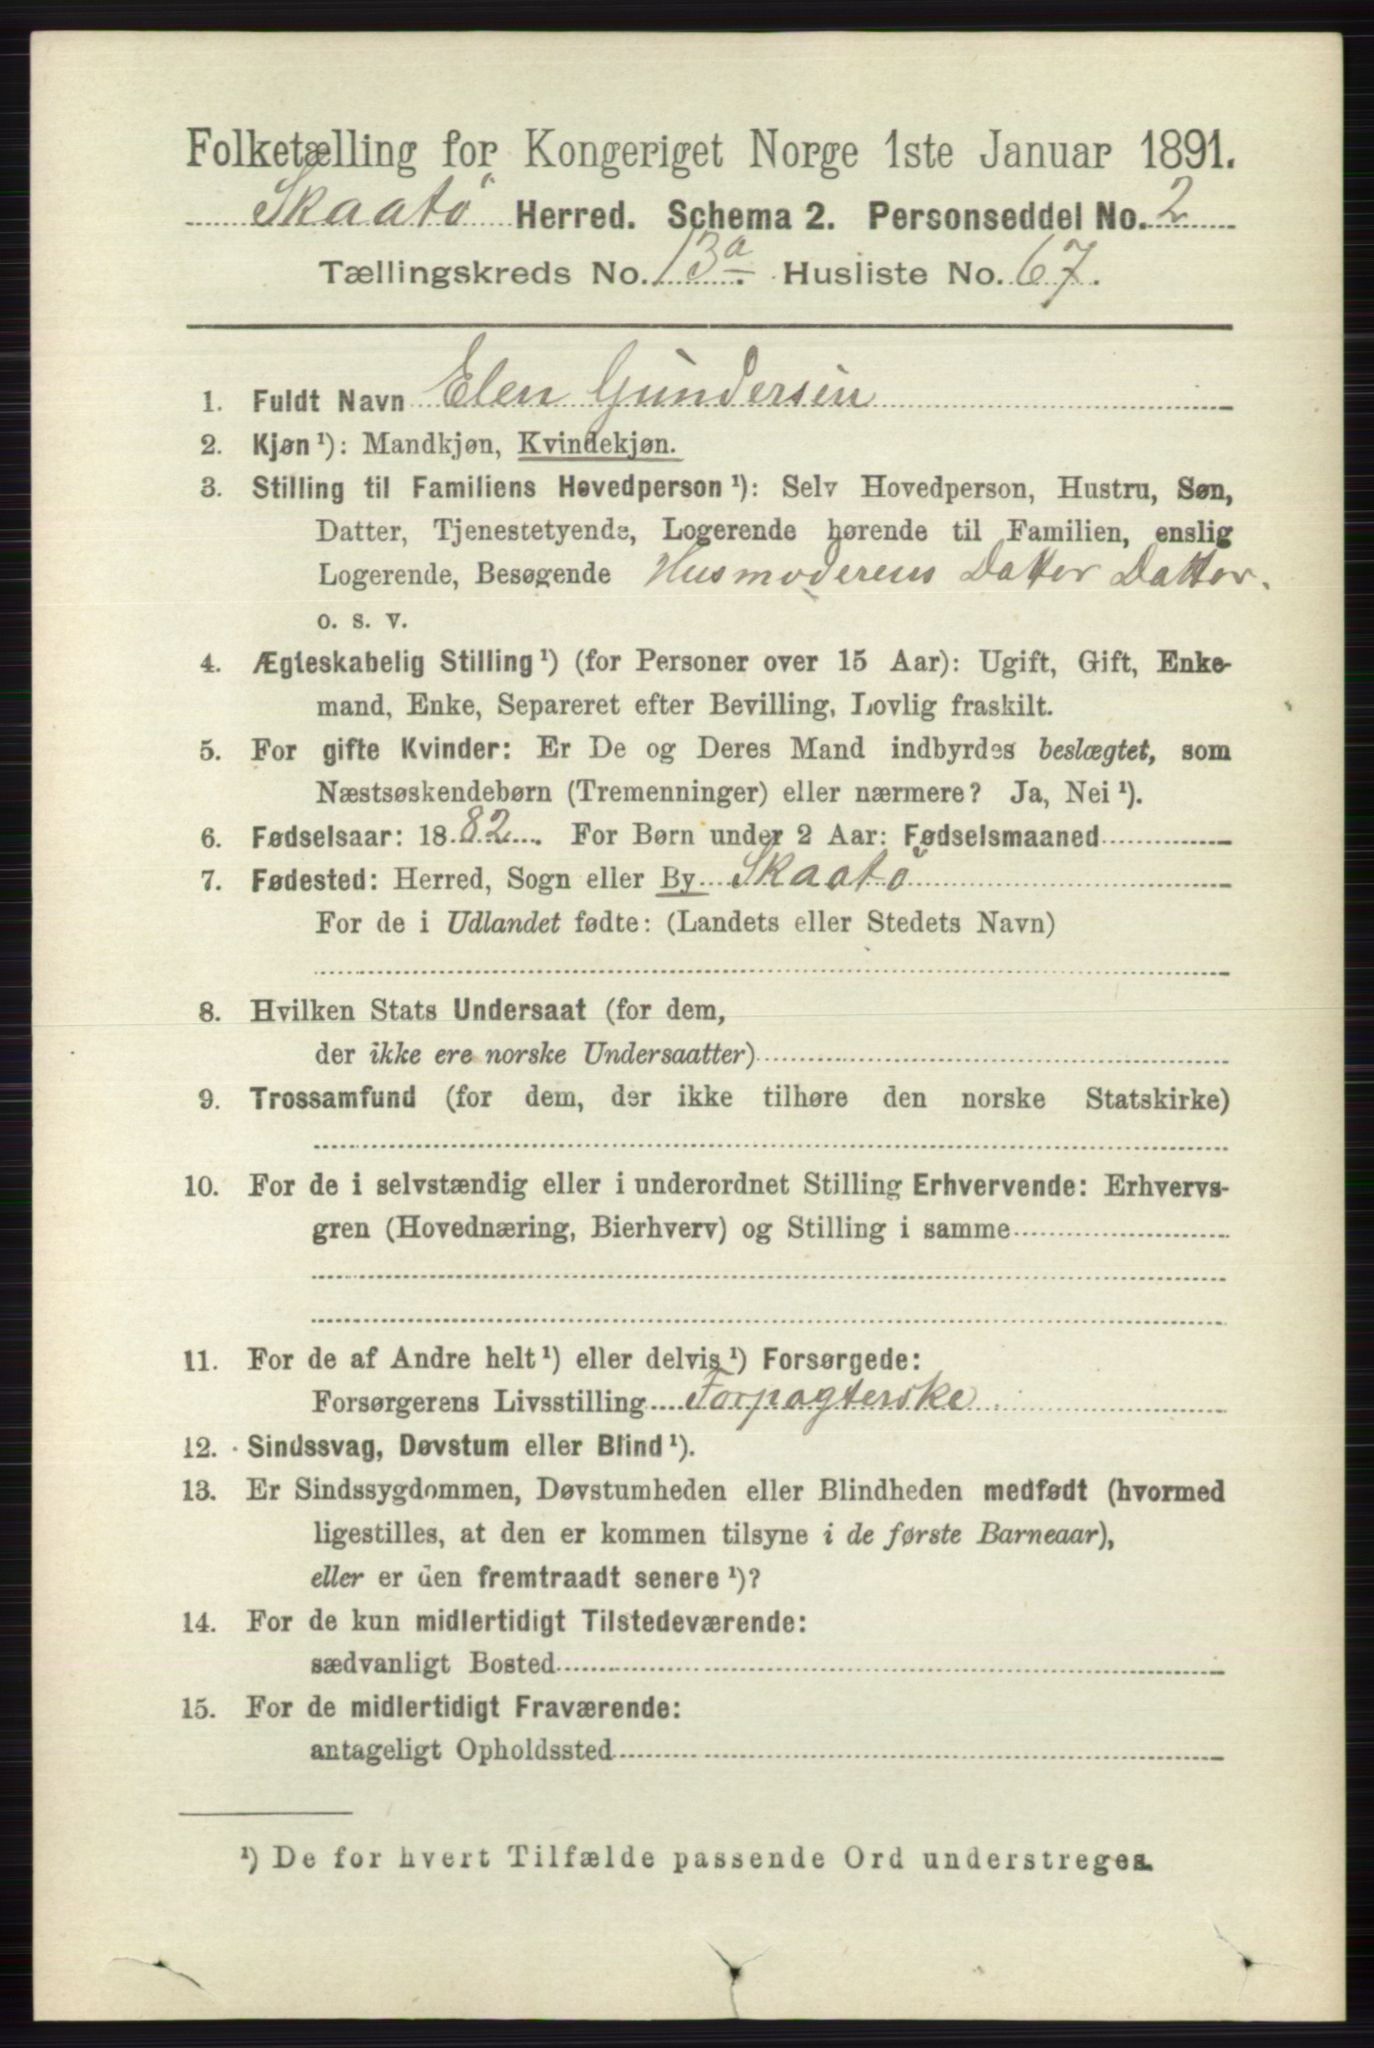 Folketælling for Kongeriget Norge 1ste Januar 1891.
Skaatö Herred. Schema 2. Personseddel No. 2
Tællingskreds No. 13a. Husliste No. 67.
1. Fuldt Navn Elen Gundersen
2. Kjøn¹): Mandkjøn, Kvindekjøn.
3. Stilling til Familiens Hovedperson¹): Selv Hovedperson, Hustru, Søn,
Datter, Tjenestetyende, Logerende hørende til Familien, enslig
Logerende, Besøgende Husmoderens Datter Datter.
o. s. v.
4. Ægteskabelig Stilling¹) (for Personer over 15 Aar): Ugift, Gift, Enke-
mand, Enke, Separeret efter Bevilling, Lovlig fraskilt.
5. For gifte Kvinder: Er De og Deres Mand indbyrdes beslægtet, som
Næstsøskendebørn (Tremenninger) eller nærmere? Ja, Nei¹).
6. Fødselsaar: 1882. For Børn under 2 Aar: Fødselsmaaned
7. Fødested: Herred, Sogn eller By Skaatö
For de i Udlandet fødte: (Landets eller Stedets Navn)
8. Hvilken Stats Undersaat (for dem,
der ikke ere norske Undersaatter)
9. Trossamfund (for dem, der ikke tilhøre den norske Statskirke)
10. For de i selvstændig eller i underordnet Stilling Erhvervende: Erhvervs-
gren (Hovednæring, Bierhverv) og Stilling i samme
11. For de af Andre helt¹) eller delvis¹) Forsørgede:
Forsørgerens Livsstilling Forpagterske
12. Sindssvag, Døvstum eller Blind¹).
13. Er Sindssygdommen, Døvstumheden eller Blindheden medfødt (hvormed
ligestilles, at den er kommen tilsyne i de første Barneaar),
eller er den fremtraadt senere¹)?
14. For de kun midlertidigt Tilstedeværende:
sædvanligt Bosted
15. For de midlertidigt Fraværende:
antageligt Opholdssted
¹) De for hvert Tilfælde passende Ord understreges.